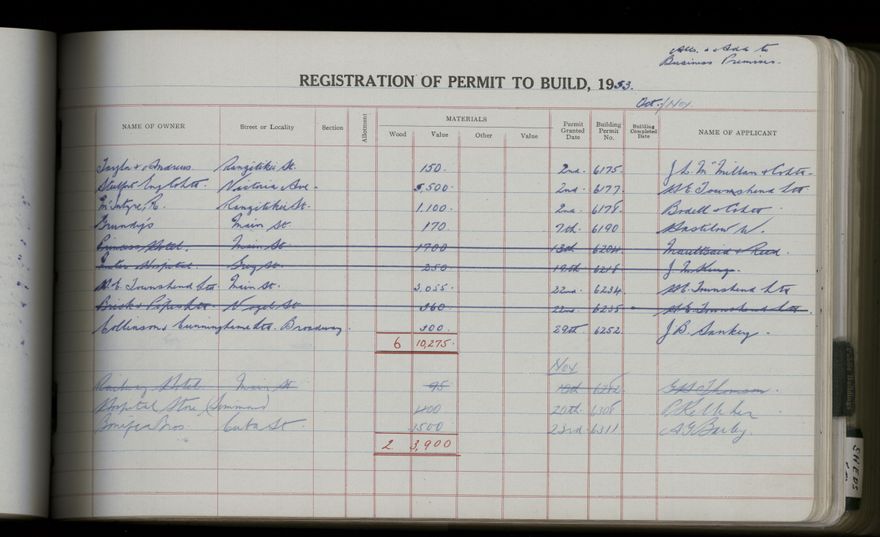 Alts. & Adds to
Business Premises.
REGISTRATION OF PERMIT TO BUILD, 1953.
Oct./Nov.
NAME OF OWNER Street or Locality Section Allotment MATERIALS Wood Value Other Value Permit Granted Date Building Permit No. Building Completed Date NAME OF APPLICANT
Taylor & Andrews Rangitikei St. 150. 2nd. 6175. J. L. McMillan & Co Ltd.
Eng Co Ltd. Victoria Ave. 5,500. 2nd. 6177. M.E. Townshend Ltd
McIntyre, R. Rangitikei St. 1,100. 2nd. 6178. Bodell & Co Ltd
Grundy's Main St. 170. 7th. 6190 W.
Princess Hotel. Main St. 1700 13th 6204 & Reed.
Hospital. Grey St. 250. 19th J. M.
M.E. Townshend Ltd Main St. 3,055. 22nd. 6234. M.E. Townshend Ltd
Bricks & Pipes Ltd. St 360 22nd 6235 M.E. Townshend Ltd.
Collinson & Cunninghame Ltd. Broadway. 300. 29th 6252 J. B. Sankey.
6 10,275.
Nov
Railway Hotel Main St 95 Thomson.
Hospital Store 20th.
Bros. Cuba St. 1500 23rd 6311
2 3,900
SHEDS